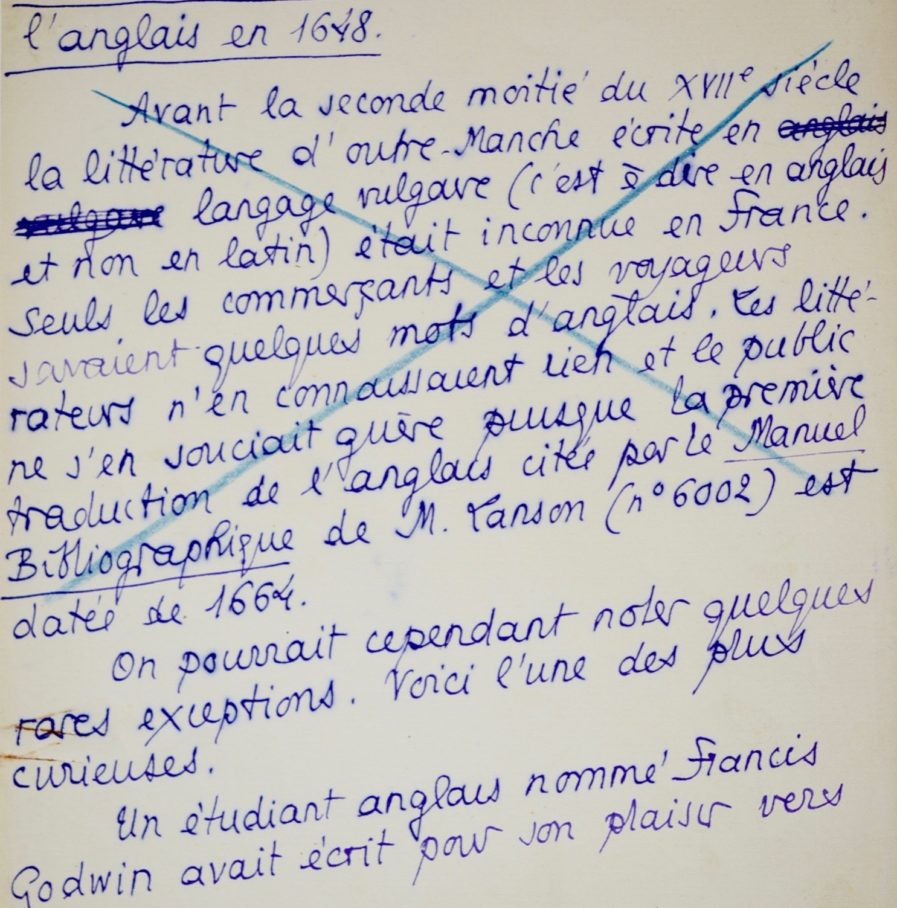 l'anglais en 1648.
Avant la seconde moitié du XVIIe siècle
la littérature d'outre-Manche écrite en anglais
vulgaire langage vulgaire (c'est à dire en anglais
et non en latin) était inconnue en France.
Seuls les commerçants et les voyageurs
savaient quelques mots d'anglais. Les litté-
rateurs n'en connaissaient rien et le public
ne s'en souciait guère puisque la première
traduction de l'anglais citée par le Manuel
Bibliographique de M. Lanson (n° 6002) est
datée de 1664.
On pourrait cependant noter quelques
rares exceptions. Voici l'une des plus
curieuses.
Un étudiant anglais nommé Francis
Godwin avait écrit pour son plaisir vers